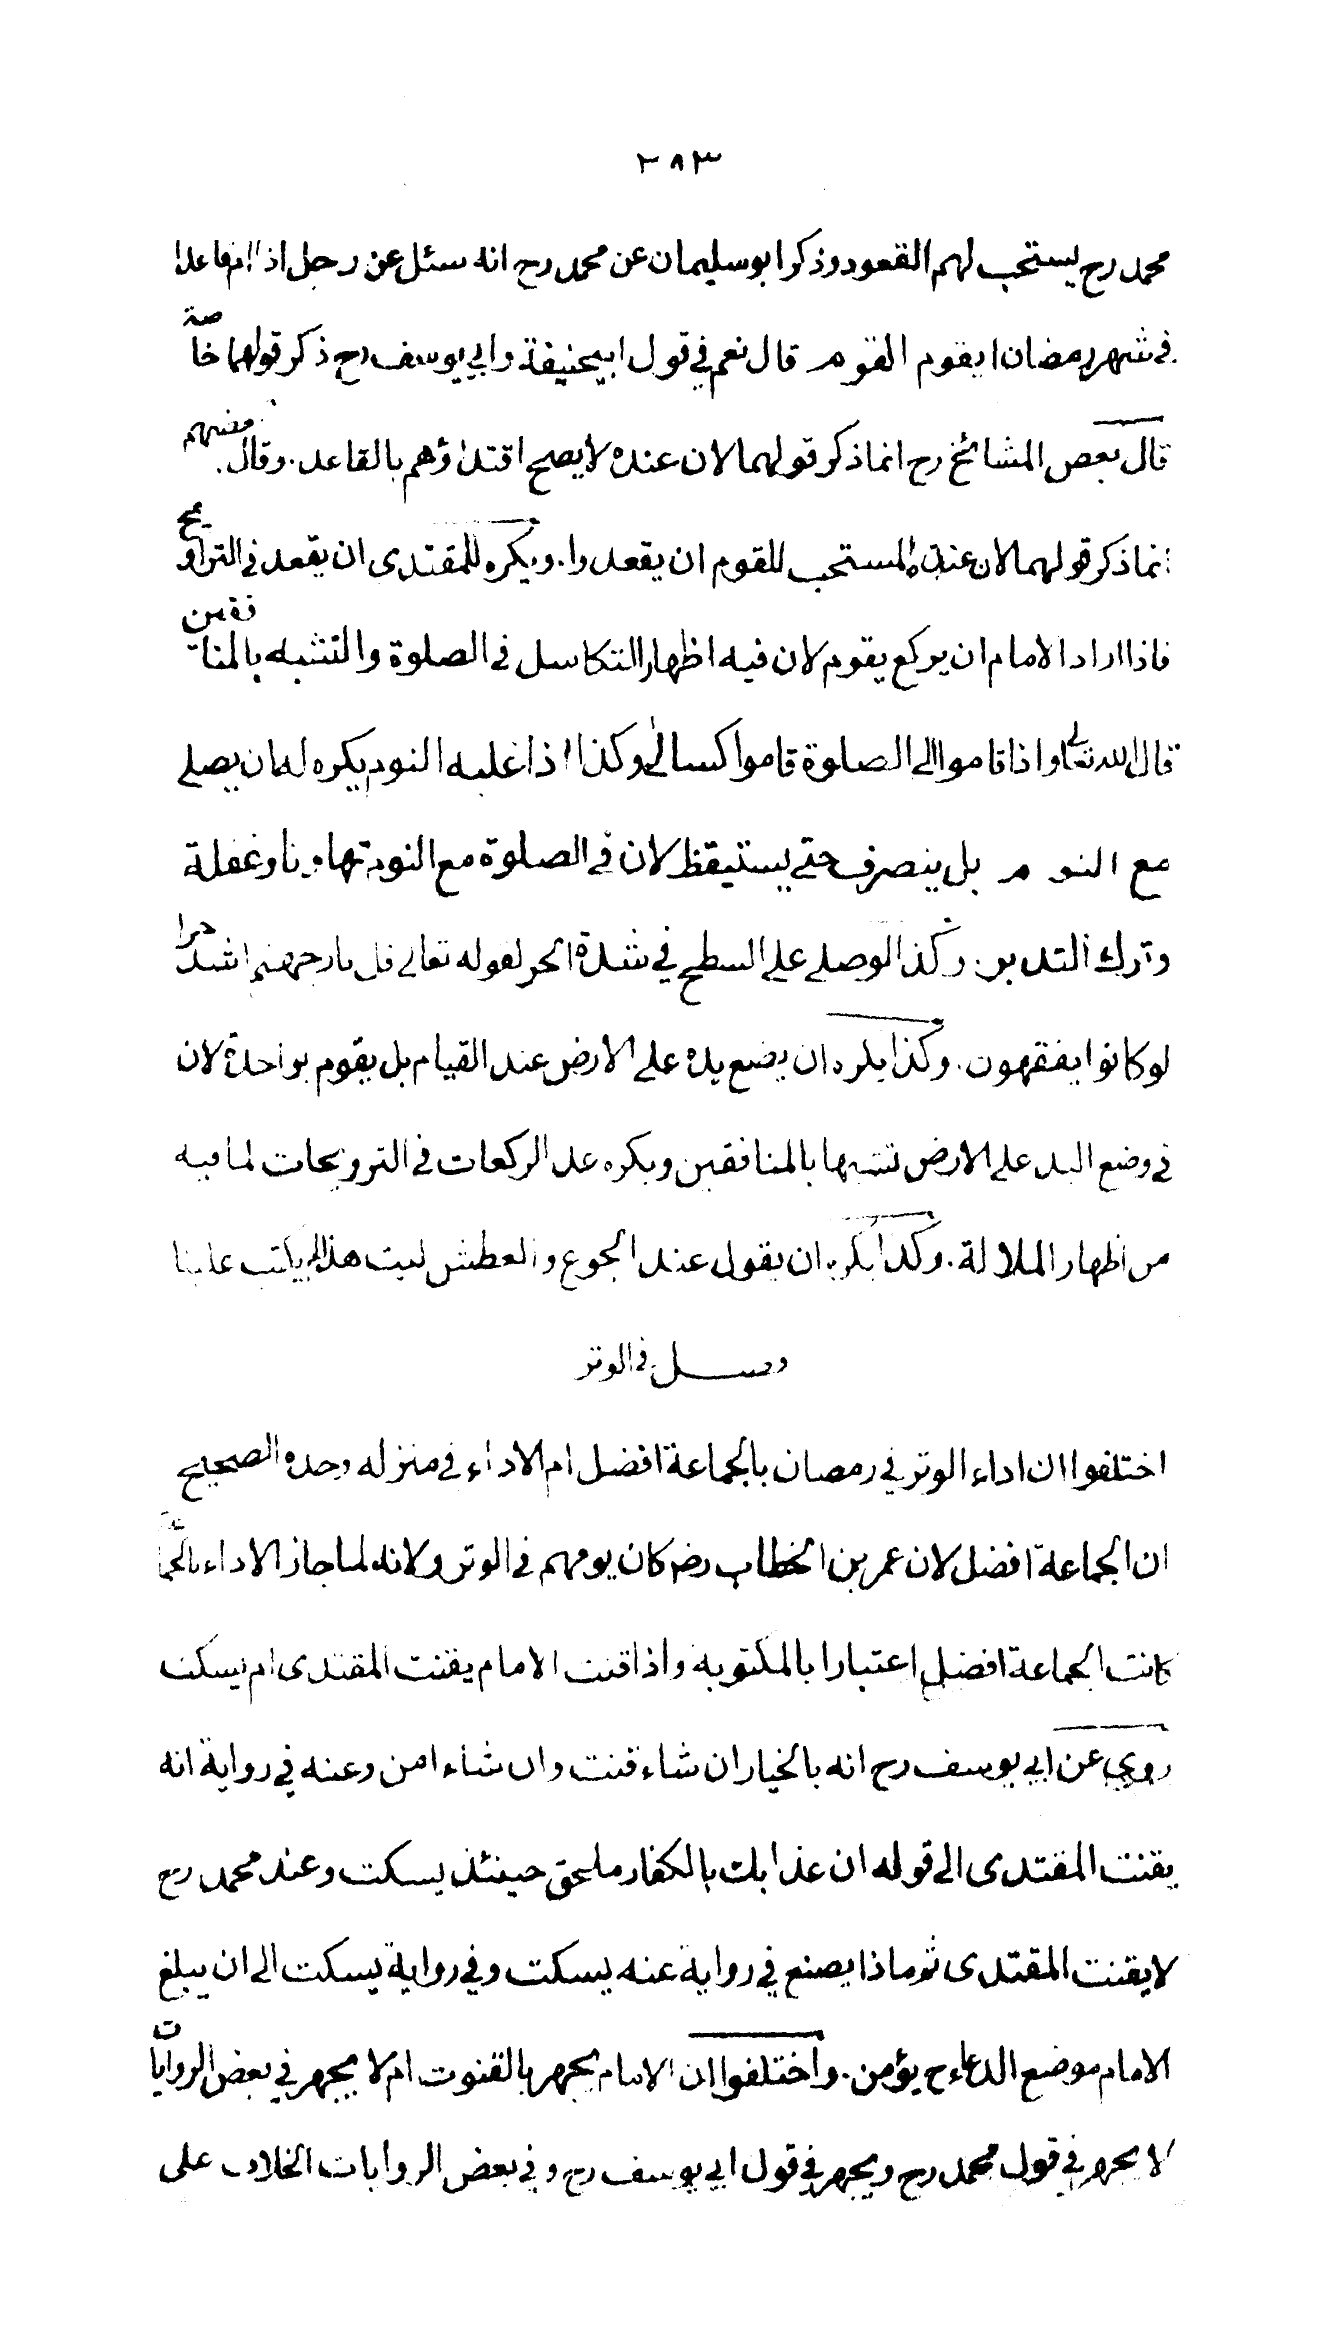 ٢٨٣
محمد رح يستحب لهم القعود وذكر ابو سليمان عن محمد رح انه سئل عن رجل اذا ام قاعدا
في شهر رمضان ايقوم القوم قال نعم في قول ابيحنيفة وابي يوسف رح ذكر قولهما خاصة
قال بعض المشائخ رح انما ذكر قولهما لان عنده لا يصح اقتداؤهم بالقاعد. وقال بعضهم
انما ذكر قولهما لان عنده المستحب للقوم ان يقعدوا. ويكره للمقتدى ان يقعد في التراويح
فاذا اراد الامام ان يركع يقوم لان فيه اظهار التكاسل في الصلوة والتشبه بالمنافقين
قال الله تعالى واذا قاموا الى الصلوة قاموا كسالى وكذا اذا غلبه النوم يكره له ان يصلي
مع النوم بل ينصرف حتى يستيقظ لان في الصلوة مع النوم تهاونا وغفلة
وترك التدبر. وكذا لو صلى على السطح في شدة الحر لقوله تعالى قل نار جهنم اشد حرا
لو كانوا يفقهون. وكذا يكره ان يضع يده على الارض عند القيام بل يقوم بواحدة لان
في وضع اليد على الارض تشبها بالمنافقين ويكره عد الركعات في الترويحات لما فيه
من اظهار الملالة. وكذا يكره ان يقول عند الجوع والعطش ليت هذا لم يكتب علينا
فصل في الوتر
اختلفوا ان اداء الوتر في رمضان بالجماعة افضل ام الاداء في منزله وحده الصحيح
ان الجماعة افضل لان عمر بن الخطاب رض كان يومهم في الوتر ولانه لما جاز الاداء بالجماعة
كانت الجماعة افضل اعتبارا بالمكتوبة واذا قنت الامام يقنت المقتدى ام يسكت
روي عن ابي يوسف رح انه بالخيار ان شاء قنت وان شاء امن وعنه في رواية انه
يقنت المقتدى الى قوله ان عذابك بالكفار ملحق حينئذ يسكت وعند محمد رح
لا يقنت المقتدى ثم ماذا يصنع في رواية عنه يسكت وفي رواية يسكت الى ان يبلغ
الامام موضع الدعاء ح يؤمن. واختلفوا ان الامام يجهر بالقنوت ام لا يجهر في بعض الروايات
لا يجهر في قول محمد رح ويجهر في قول ابي يوسف رح وفي بعض الروايات الخلاف على